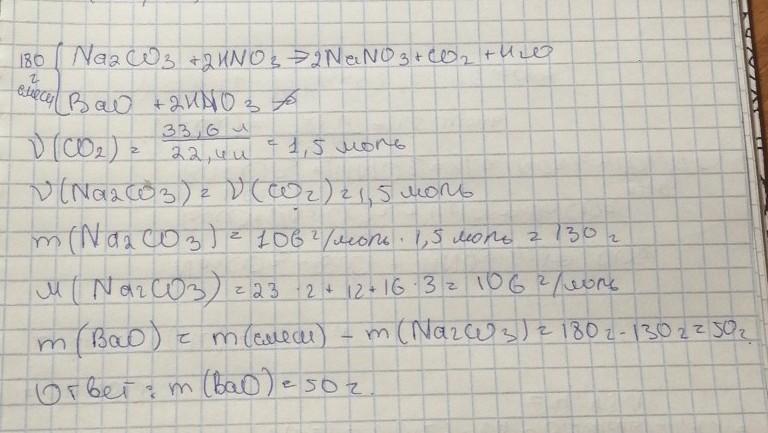 180 г смеси { Na2CO3 + 2HNO3 → 2NaNO3 + CO2 + H2O
BaO + 2HNO3 ↛
ν(CO2) = 33,6 л / 22,4 л = 1,5 моль
ν(Na2CO3) = ν(CO2) = 1,5 моль
m(Na2CO3) = 106 г/моль · 1,5 моль = 130 г
M(Na2CO3) = 23 · 2 + 12 + 16 · 3 = 106 г/моль
m(BaO) = m(смеси) - m(Na2CO3) = 180 г - 130 г = 50 г.
Ответ: m(BaO) = 50 г.